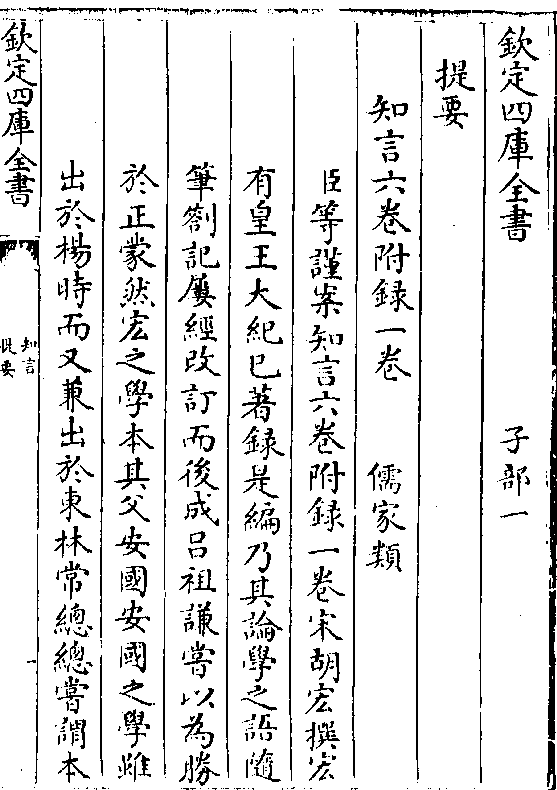 欽定四庫全書　　　子部一
提要
知言六卷附録一卷　　儒家類
臣等謹案知言六卷附録一卷宋胡宏撰宏
有皇王大紀已著録是編乃其論學之語隨
筆劄記屢經改訂而後成吕祖謙嘗以為勝
於正蒙然宏之學本其父安國安國之學雖
出於楊時而又兼出於東林常總總嘗謂本
欽定四庫全書
知言
提要
一